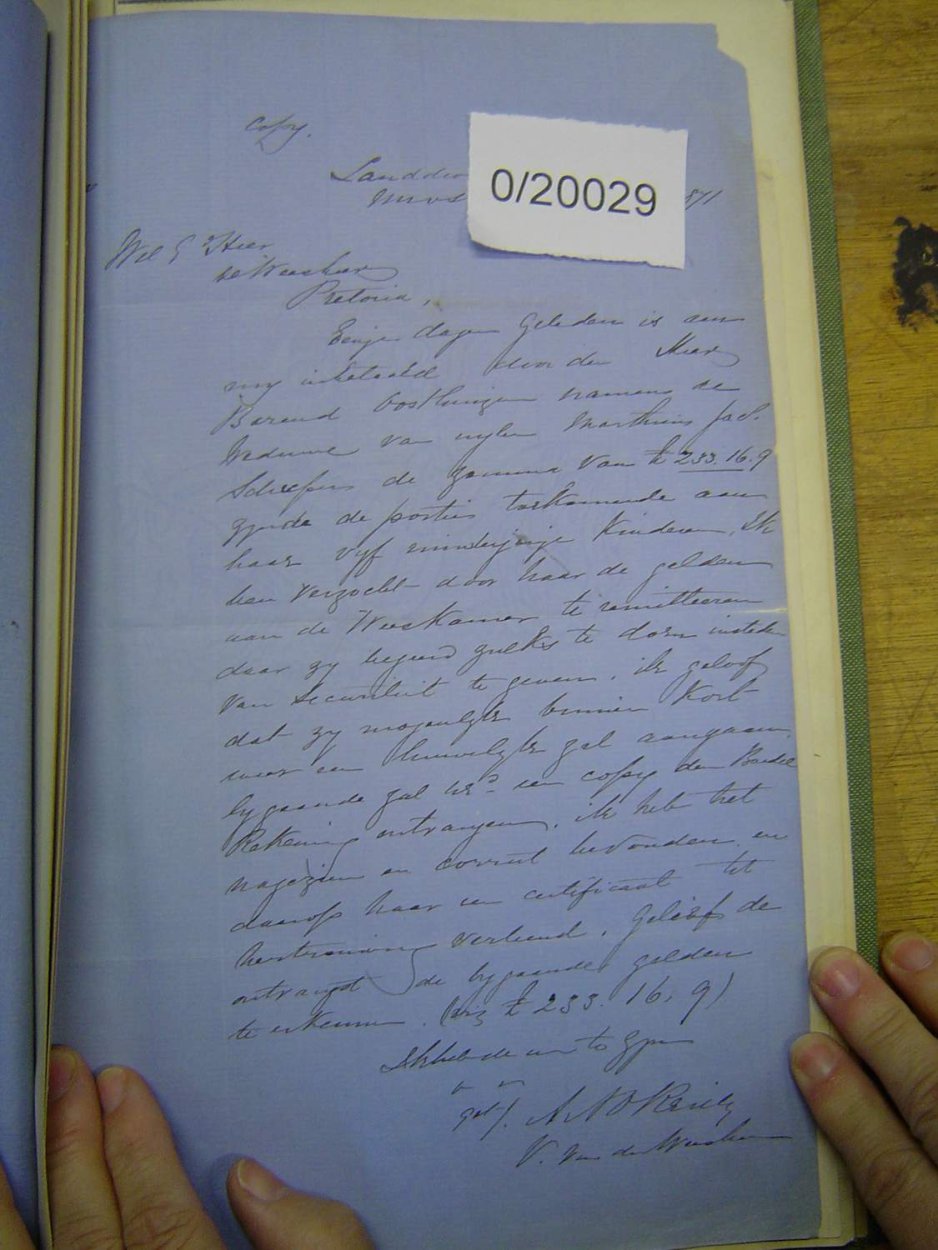 Copy.
Landdro
0/20029
871
Wel E Heer
de Weesheer
Pretoria,
Eenige dagen geleden is aan
my inbetaald door den Heer
Barend Vosthuizen namens de
Weduwe van wylen Marthinus Jac.
Scheepers de somma van £ 233.16.9
zynde de porties toekomende aan
haar vyf minderjarige Kinderen. Ik
ben verzocht door haar de gelden
aan de Weeskamer te remitteeren
daar zy begeerd zulks te doen instede
van Securiteit te geven. ik geloof
dat zy mogelyk binnen Kort
weer een huwelyk zal aangaan.
bygaande zal UEd een copy den Boedel
Rekening ontvangen. ik heb het
nagezien en correct bevonden en
daarop haar een certificaat tot
hertrouwing verleend. Gelieft de
ontvangst de bygaande gelden
te erkennen. (viz £ 233. 16. 9)
Ik heb de eer te zyn
get/. A A O'Reilly
V. van der Weeskamer